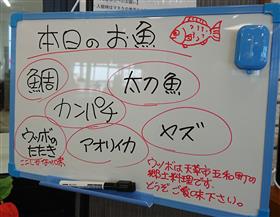 本日のお魚
鯛
太刀魚
カンパチ
ウツボの
たたき
ここでしか味わえない
アオリイカ
ヤズ
ウツボは天草市五和町の
郷土料理です。
どうぞご賞味下さい。